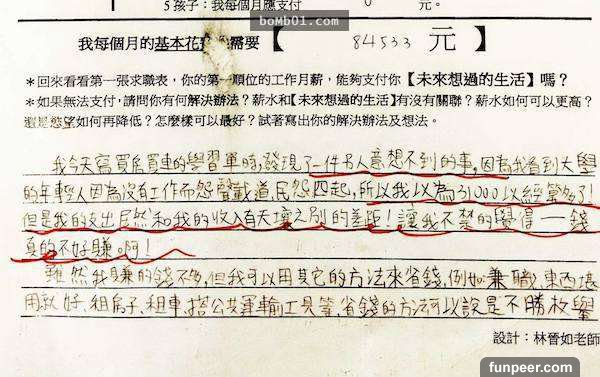 bomb01.com
5 孩子：我每個月應支付 0 元。
我每個月的基本花 需要【 84533 元】
＊回來看看第一張求職表，你的第一順位的工作月薪，能夠支付你【未來想過的生活】嗎？
＊如果無法支付，請問你有何解決辦法？薪水和【未來想過的生活】有沒有關聯？薪水如何可以更高？
還是慾望如何再降低？怎麼樣可以最好？試著寫出你的解決辦法及想法。
我今天寫買房買車的學習單時，發現了一件令人意想不到的事，因為我看到大學
的年輕人因為沒有工作而怨聲載道、民怨四起，所以我以為31000以經算多了！
但是我的支出居然和我的收入有天壤之別的差距！讓我不禁的覺得一錢
真的不好賺啊！
雖然我賺的錢不多，但我可以用其它的方法來省錢，例如：兼職、東西堪
用就好、租房子、租車、搭公共運輸工具等，省錢的方法可以說是不勝枚舉
設計：林晉如老師
funpeer.com